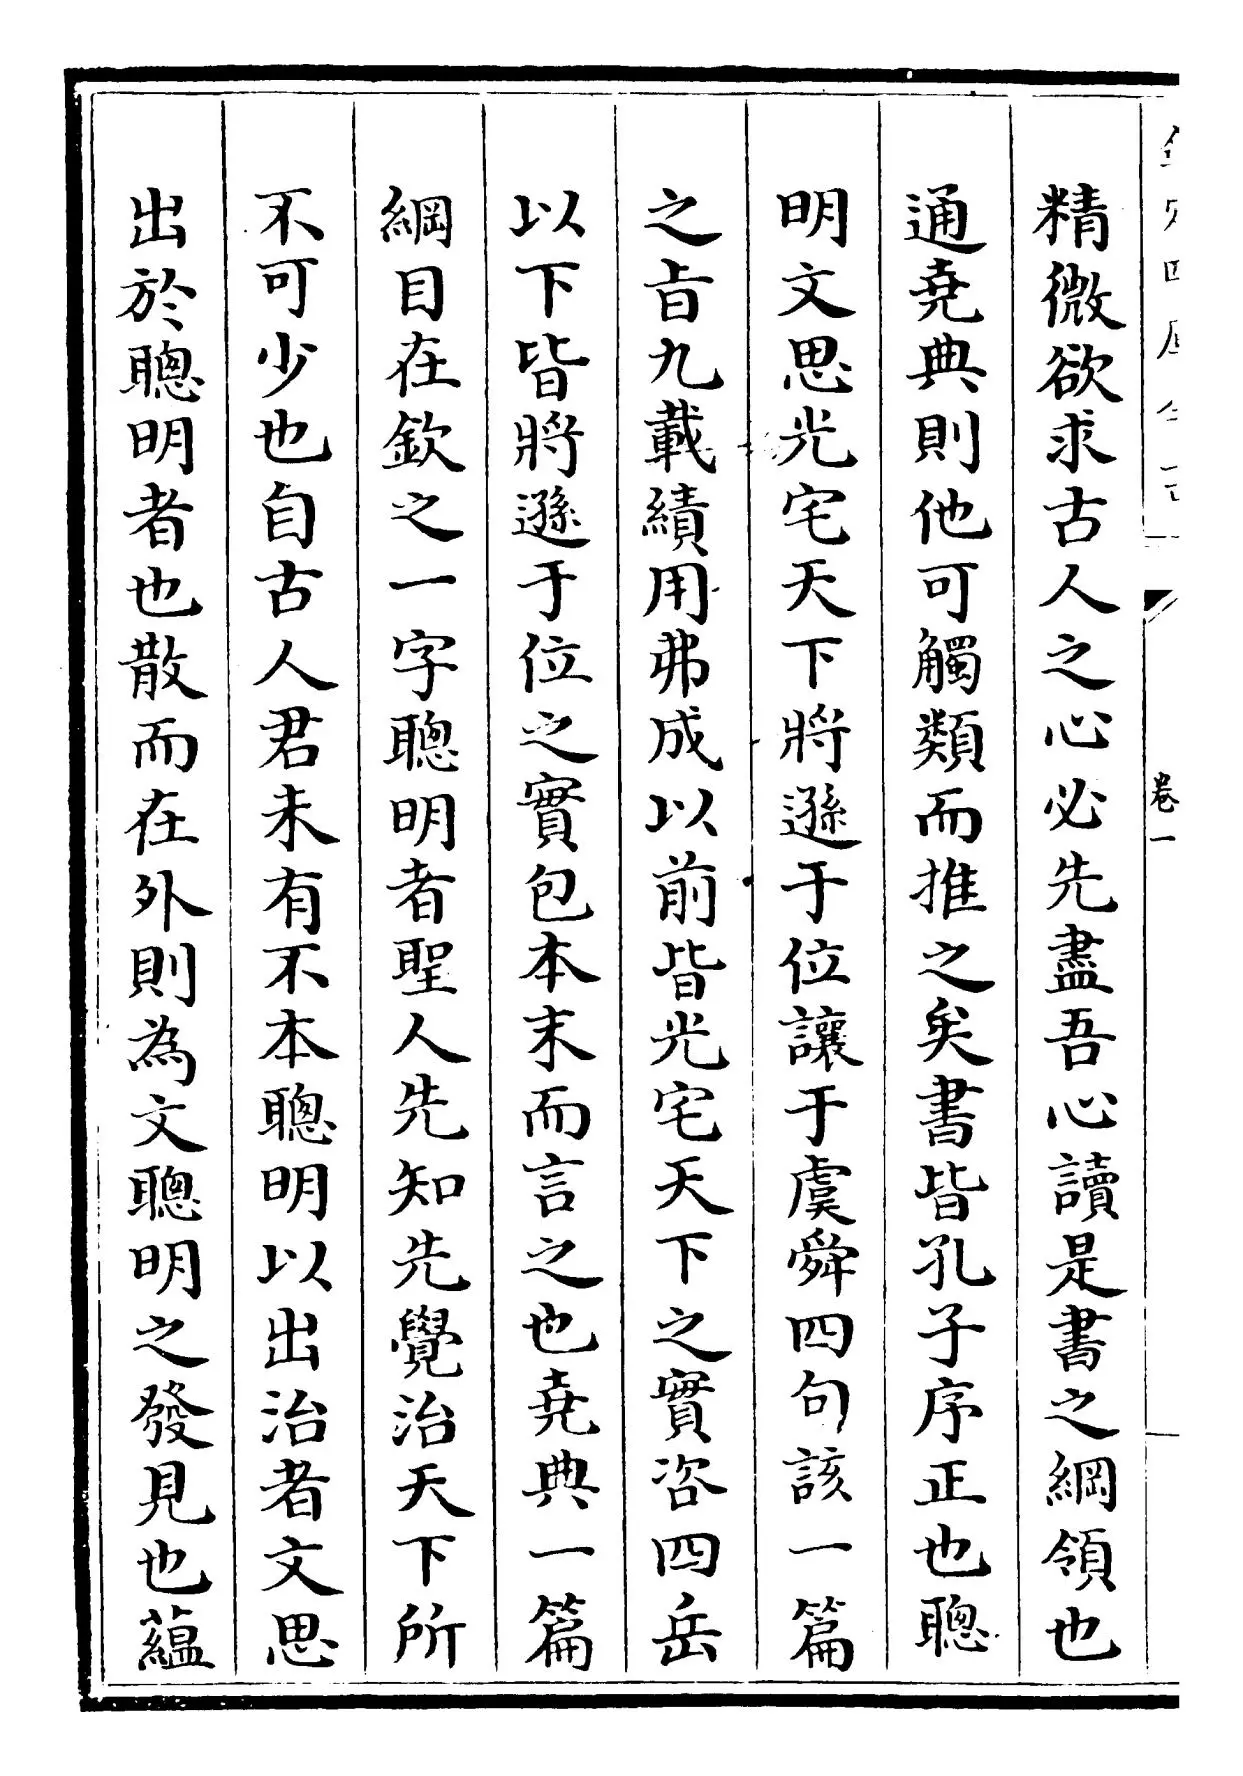 精微欲求古人之心必先盡吾心讀是書之綱領也
通堯典則他可觸類而推之矣書皆孔子序正也聰
明文思光宅天下將遜于位讓于虞舜四句該一篇
之㫖九載績用弗成以前皆光宅天下之實咨四岳
以下皆將遜于位之實包本末而言之也堯典一篇
綱目在欽之一字聰明者聖人先知先覺治天下所
不可少也自古人君未有不本聰明以出治者文思
出於聰明者也散而在外則為文聰明之發見也蘊
卷一